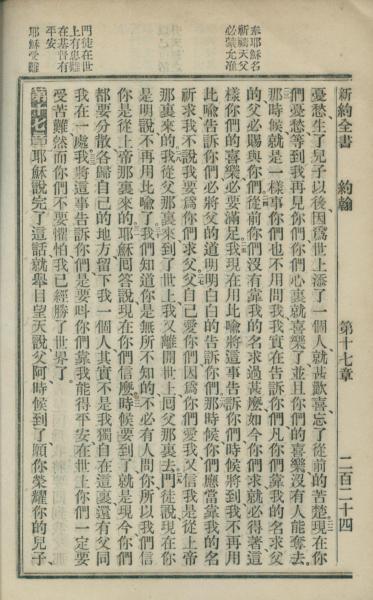 奉耶穌名
祈禱天父
必蒙允准
門徒在世
上有患難
在基督有
平安
耶穌受難
新約全書 約翰 第十七章 二百二十四
憂愁、生了兒子以後因爲世上添了一個人、就甚歡喜、忘了從前的苦楚、現在你
們憂愁等到我再見你們你們心裏就喜樂了並且你們的喜樂沒有人能奪去、
那時候就是一樣事你們也不用問我我實在告訴你們凡你們靠我的名求父
的父必賜與你們從前你們沒有靠我的名求過甚麽如今你們求就必得著這
樣你們的喜樂必要滿足我現在用比喻將這事告訴你們時候將到我不再用
此喻告訴你們必將父的道明明白白的告訴你們那時候你們應當靠我的名
祈求我不說我要爲你們求父父自己愛你們因爲你們愛我又信我是從上帝
那裏來的我從父那裏來到了世上我又離開世上囘父那裏去門徒說現在你
是明說不再用比喻了我們知道你是無所不知的不必有人問你所以我們信
你是從上帝那裏來的耶穌囘答說現在你們信麽時候要到了就是現今你們
都要分散各歸自己的地方留下我一個人其實不是我獨自在這裏還有父同
我在一處我將這事告訴你們是要呌你們靠我能得平安在世上你們一定要
受苦難然而你們不要懼怕我已經勝了世界了
第十七章耶穌說完了這話就舉目望天說父阿時候到了願你榮耀你的兒子、